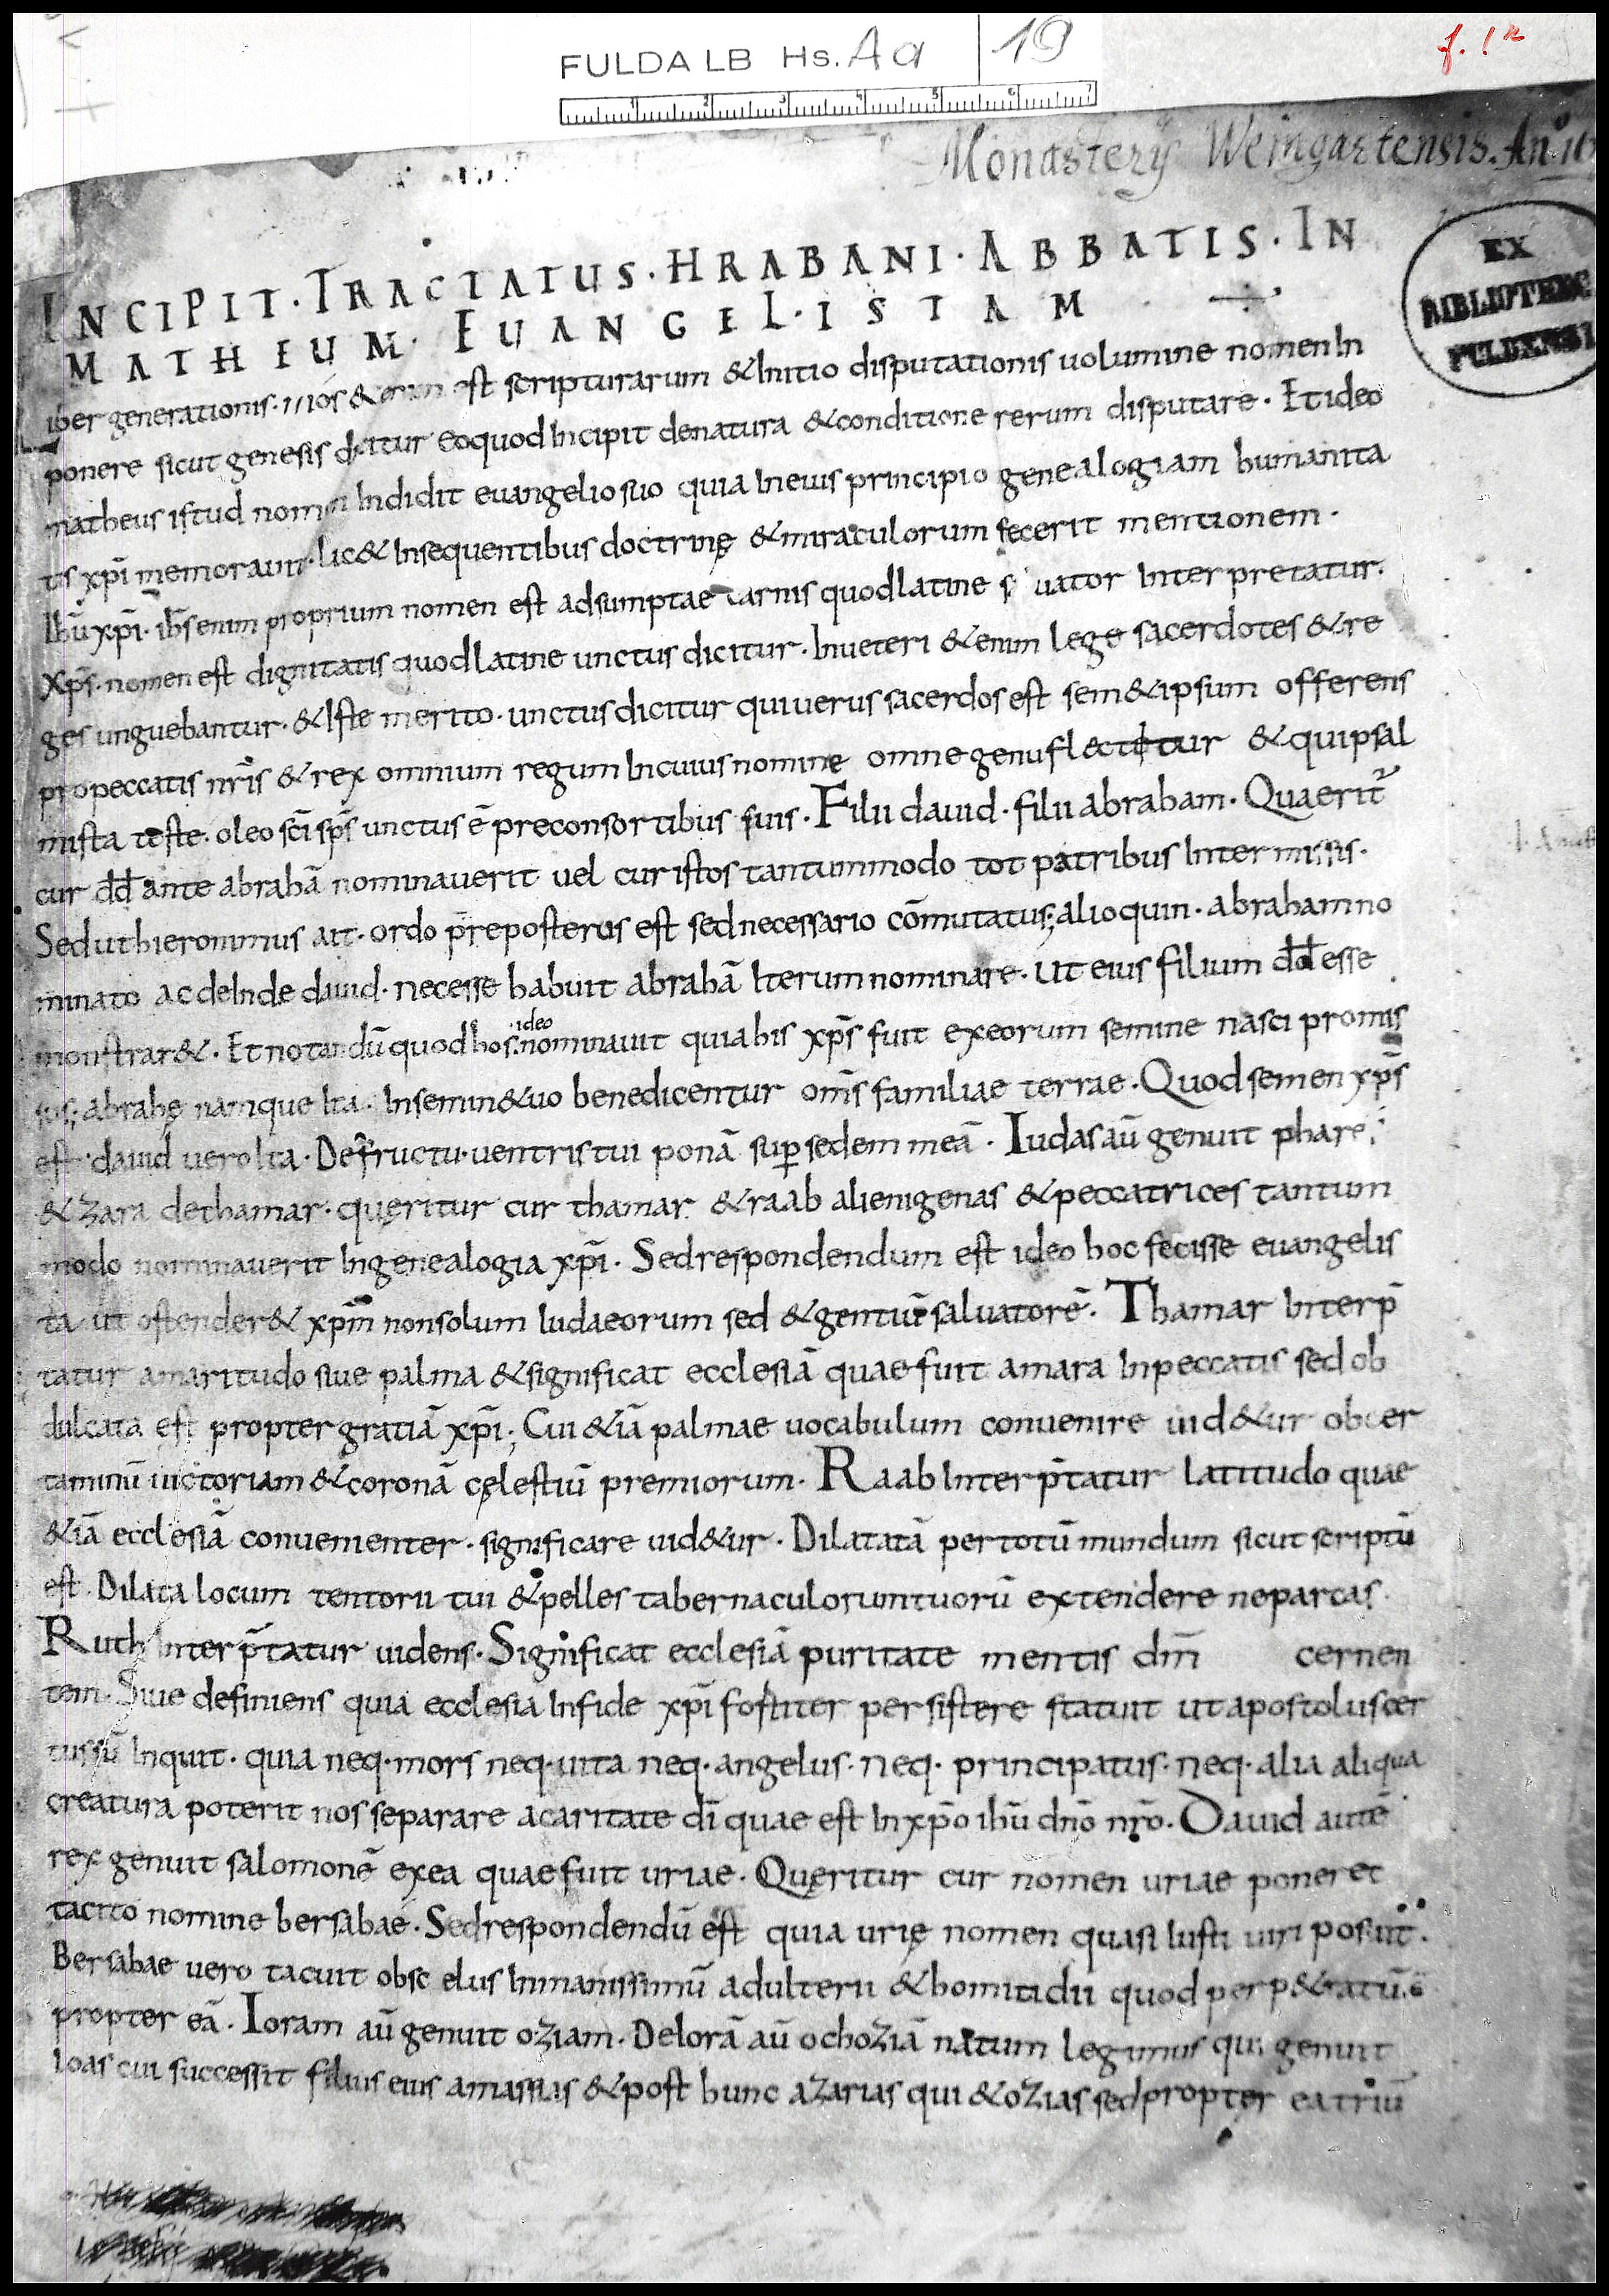 FULDA LB Hs. Aa 19
f. 1r
Monasterij Weingartensis. An.
EX
BIBLIOTHEC
FULDENSI
INCIPIT · TRACTATUS · HRABANI · ABBATIS · IN
MATHEUM · EUANGEL·ISTAM
iber generationis · mos & est scripturarum & Initio disputationis uolumine nomen In
ponere sicut genesis dicitur eoquod Incipit denatura & conditione rerum disputare · Et ideo
matheus istud nomen Indidit euangelio suo quia In eius principio genealogiam humanita
tis xp̄i memorauit · lic& Insequentibus doctrinę & miraculorum fecerit mentionem ·
Ihū xp̄i · ihs̄ enim proprium nomen est adsumptae carnis quod latine uator Interpretatur ·
Xp̄s · nomen est dignitatis quod latine unctus dicitur · Inueteri &enim lege sacerdotes & re
ges unguebantur · & Iste merito · unctus dicitur qui uerus sacerdos est sem&ipsum offerens
propeccatis nr̄is & rex omnium regum Incuius nomine omne genu flectitur & qui psal
mista teste · oleo sc̄i sp̄s unctus ē preconsortibus suis · Filii dauid · filii abraham · Quaerit᷑
cur dd̄ ante abrahā nominauerit uel cur istos tantummodo tot patribus Intermissis ·
Sed ut hieronimus ait · ordo p̄reposterus est sed necessario cōmutatus; alioquin · abraham no
minato ac deInde dauid · necesse habuit abrahā Iterum nominare · ut eius filium dd̄ esse
monstrar& · Et notandū quod hos · ideo nominauit quia his xp̄s fuit ex eorum semine nasci promis
sus; abrahę namque Ita · Insemin& uo benedicentur om̄s familiae terrae · Quod semen xp̄s
est · dauid uero Ita · De fructu · uentris tui ponā sup̄ sedem meā · Iudas aū genuit phare
& zara dethamar · quęritur cur thamar & raab alienigenas & peccatrices tantum
modo nominauerit Ingenealogia xp̄i · Sed respondendum est ideo hoc fecisse euangelis
ta ut ostender& xp̄m non solum Iudaeorum sed & gentiū saluatorē · Thamar Interp̄
tatur amaritudo siue palma & significat ecclesiā quae fuit amara Inpeccatis sed ob
dulcata est propter gratiā xp̄i; Cui &iā palmae uocabulum conuenire uid&ur ob cer
taminū uictoriam & coronā cęlestiū premiorum · Raab Interp̄tatur latitudo quae
&iā ecclesiā conuenienter · significare uid&ur · Dilatatā per totū mundum sicut scriptū
est · Dilata locum tentorii tui & pelles tabernaculorum tuorū extendere ne parcas ·
Ruth Interp̄tatur uidens · Significat ecclesiā puritate mentis dm̄ cernen
tem · Siue definiens quia ecclesia Infide xp̄i fortiter persistere statuit ut apostolus cer
tus sū Inquit · quia neq · mors neq · uita neq · angelus · neq · principatus · neq · alia aliqua
creatura poterit nos separare a caritate dī quae est In xp̄o ihū dn̄o nr̄o · Dauid autē
rex genuit salomonē ex ea quae fuit uriae · Quęritur cur nomen uriae poneret
tacito nomine bersabae · Sed respondendū est quia urię nomen quasi Iusti uiri posuit ·
Bersabae uero tacuit ob scelus Inmanissimū adulterii & homicidii quod perp&ratū ē
propter eā · Ioram aū genuit oziam · De Iorā aū ochoziā natum legimus qui genuit
Ioas cui successit filius eius amassias & post hunc azarias qui & ozias sed propter ea triū